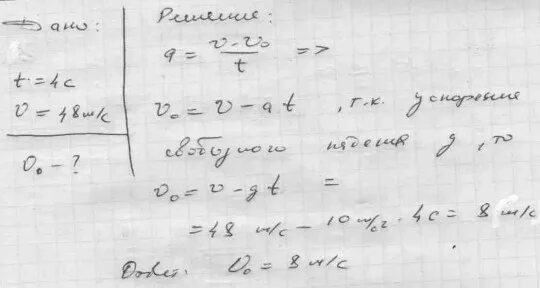 Дано:
t = 4с
v = 48м/с
v₀ - ?
Решение:
a = (v - v₀)/t =>
v₀ = v - a t , т.к. ускорение
свободного падения g, то
v₀ = v - g t =
= 48 м/с - 10 м/с² · 4с = 8 м/с
Ответ: v₀ = 8 м/с